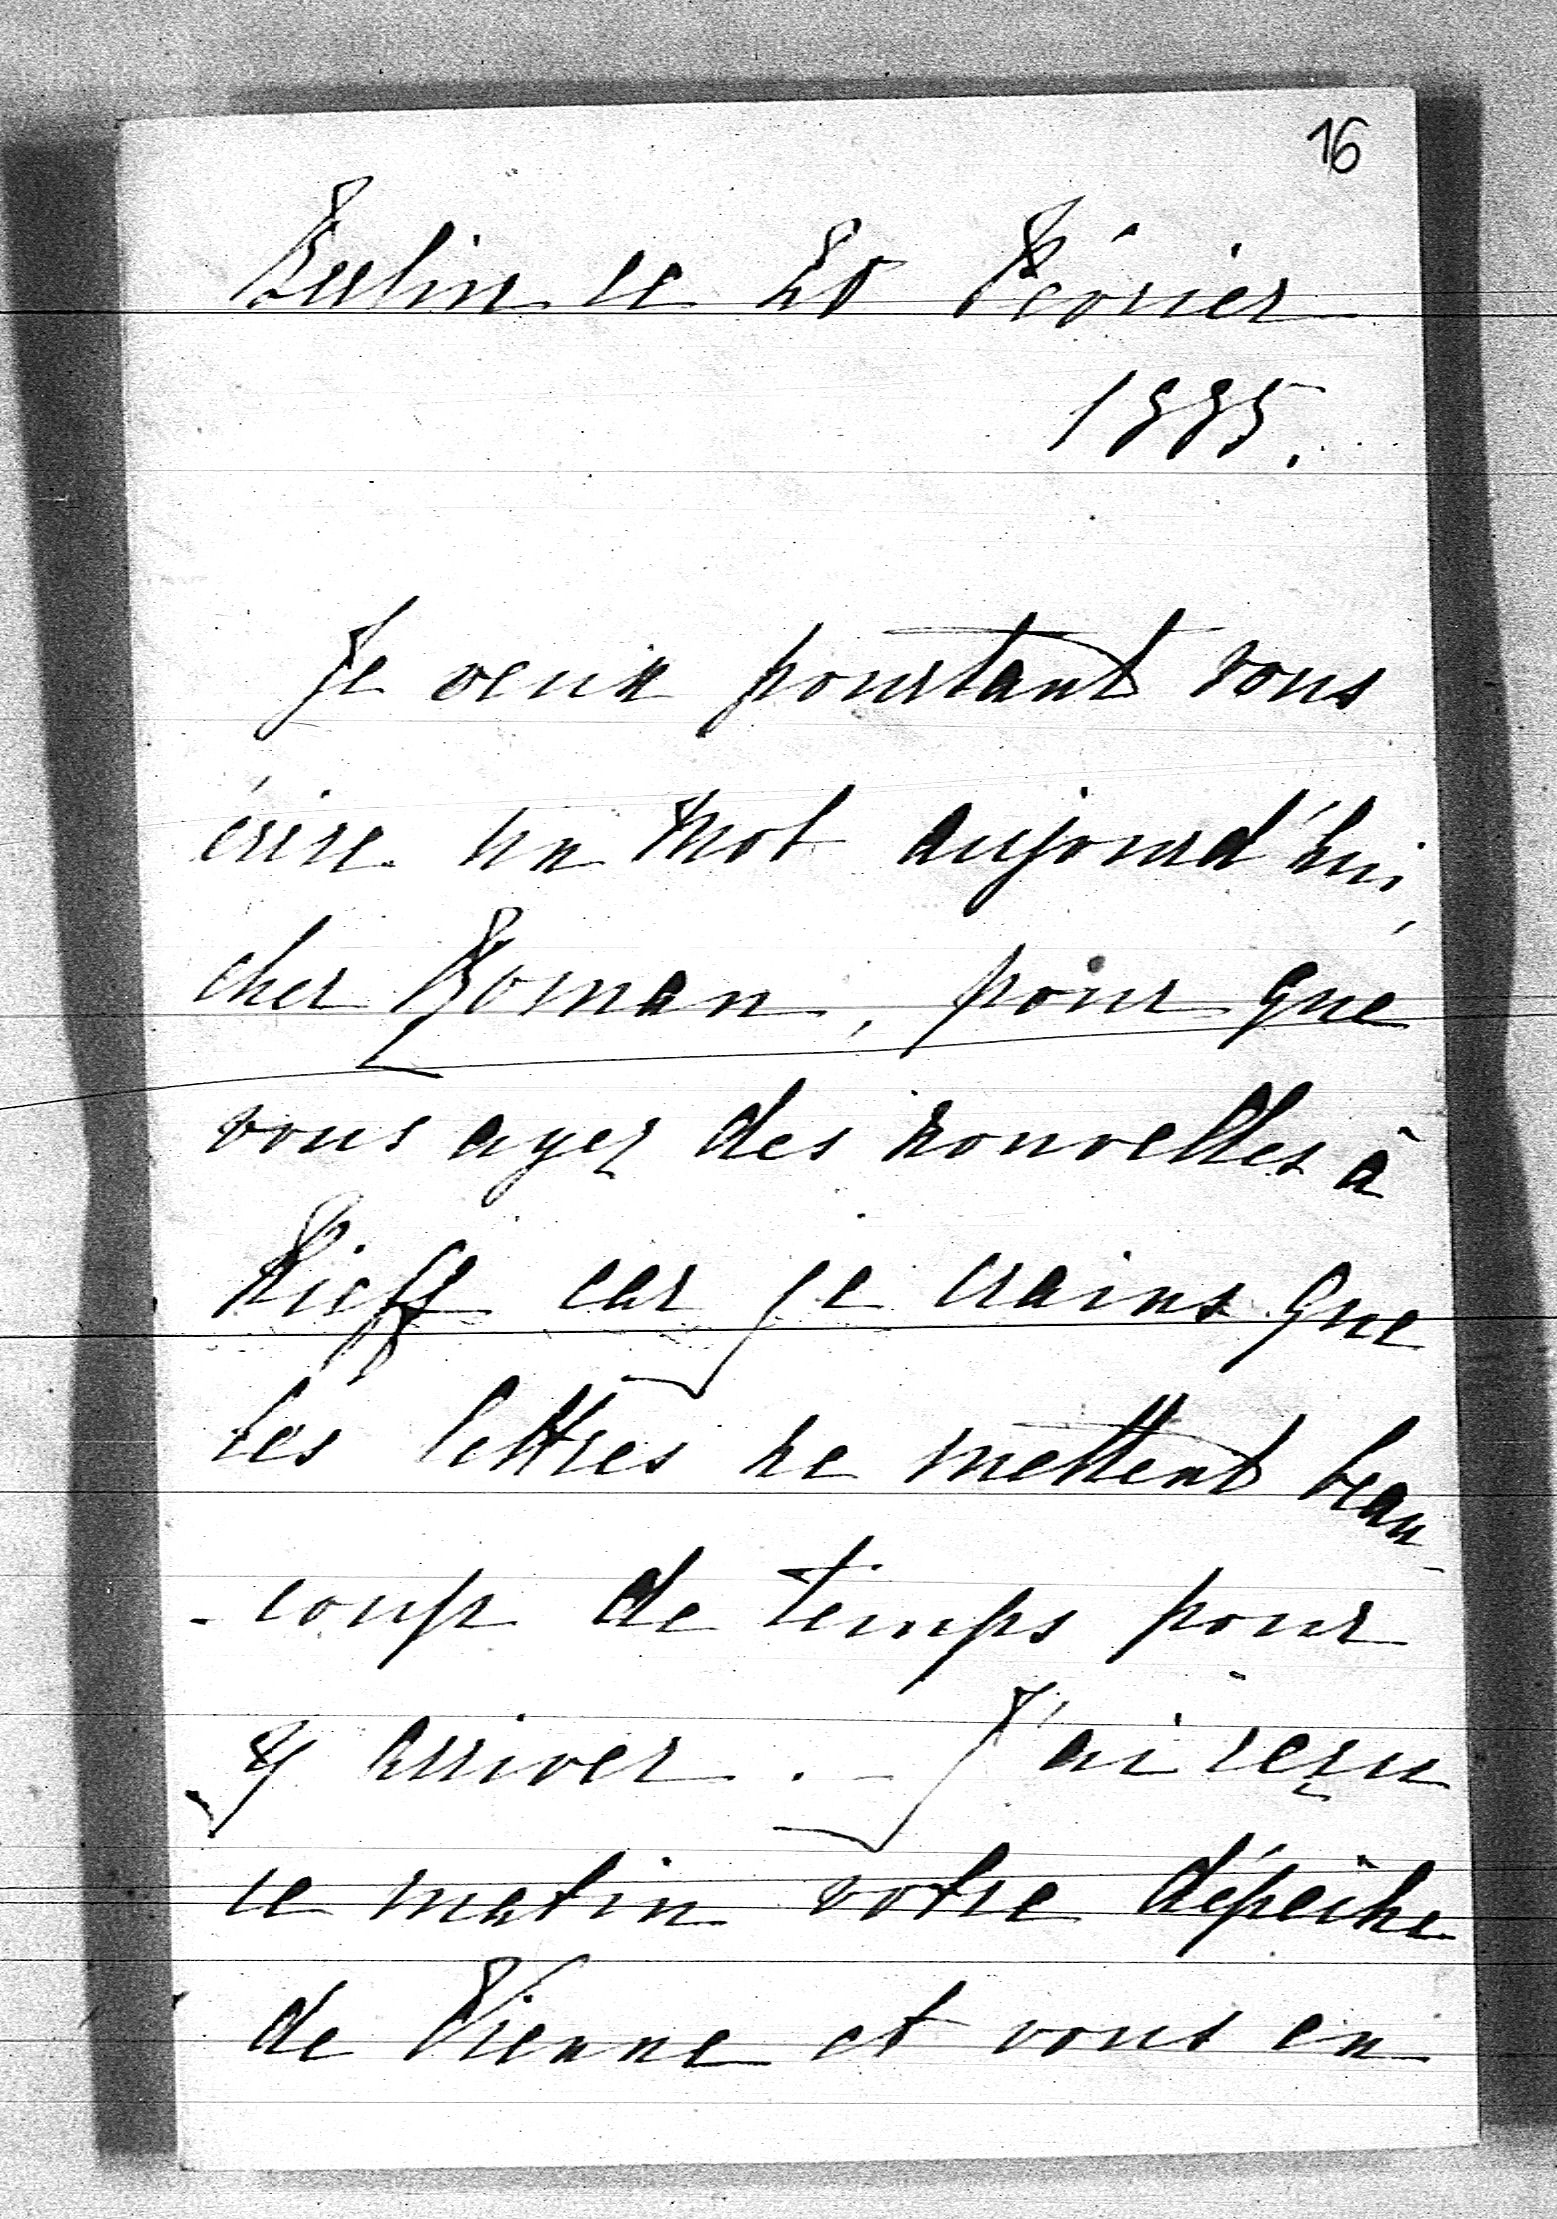 16
Berlin ce 20 Février
1885.
Je veux pourtant vous
écrire un mot aujourd'hui,
cher Roman, pour que
vous ayez des nouvelles à
Kieff car je crains que
les lettres ne mettent beau-
-coup de temps pour
y arriver. - J'ai reçu
ce matin votre dépêche
de Vienne et vous en